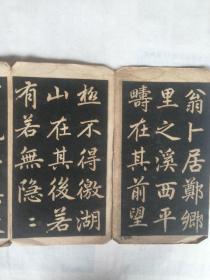 翁卜居鄭鄉
里之溪西平
疇在其前望
極不得徼湖
山在其後若
有若無隐〻